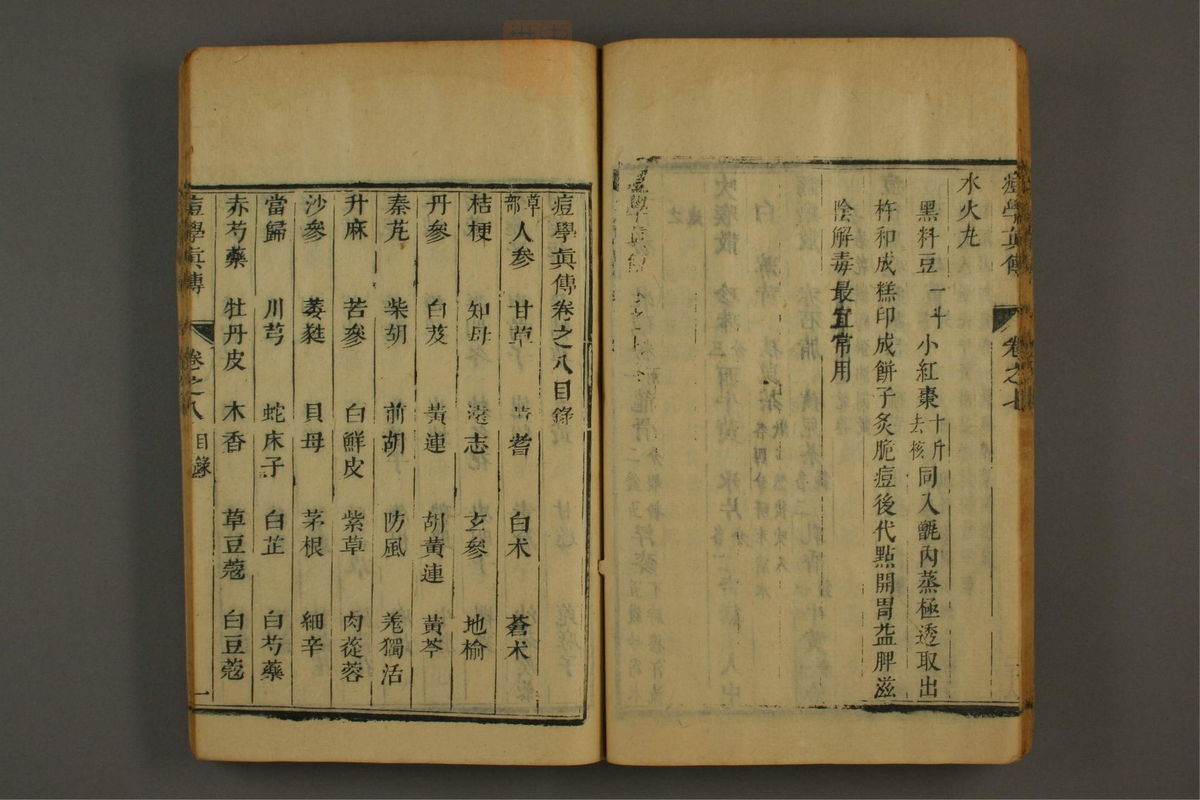 痘學眞傳 卷之七
水火丸
黑料豆一斗 小紅棗十斤去核 同入甑內蒸極透取出
杵和成糕印成餅子炙脆痘後代點開胃益脾滋
陰解毒最宜常用
痘學眞傳卷之八目錄
草部 人參 甘草 黃耆 白术 蒼术
桔梗 知母 遠志 玄參 地榆
丹參 白芨 黃連 胡黃連 黃芩
秦艽 柴胡 前胡 防風 羗獨活
升麻 苦參 白鮮皮 紫草 肉蓯蓉
沙參 萎蕤 貝母 茅根 細辛
當歸 川芎 蛇床子 白芷 白芍藥
赤芍藥 牡丹皮 木香 草豆蔻 白豆蔻
痘學眞傳 卷之八 目錄 一